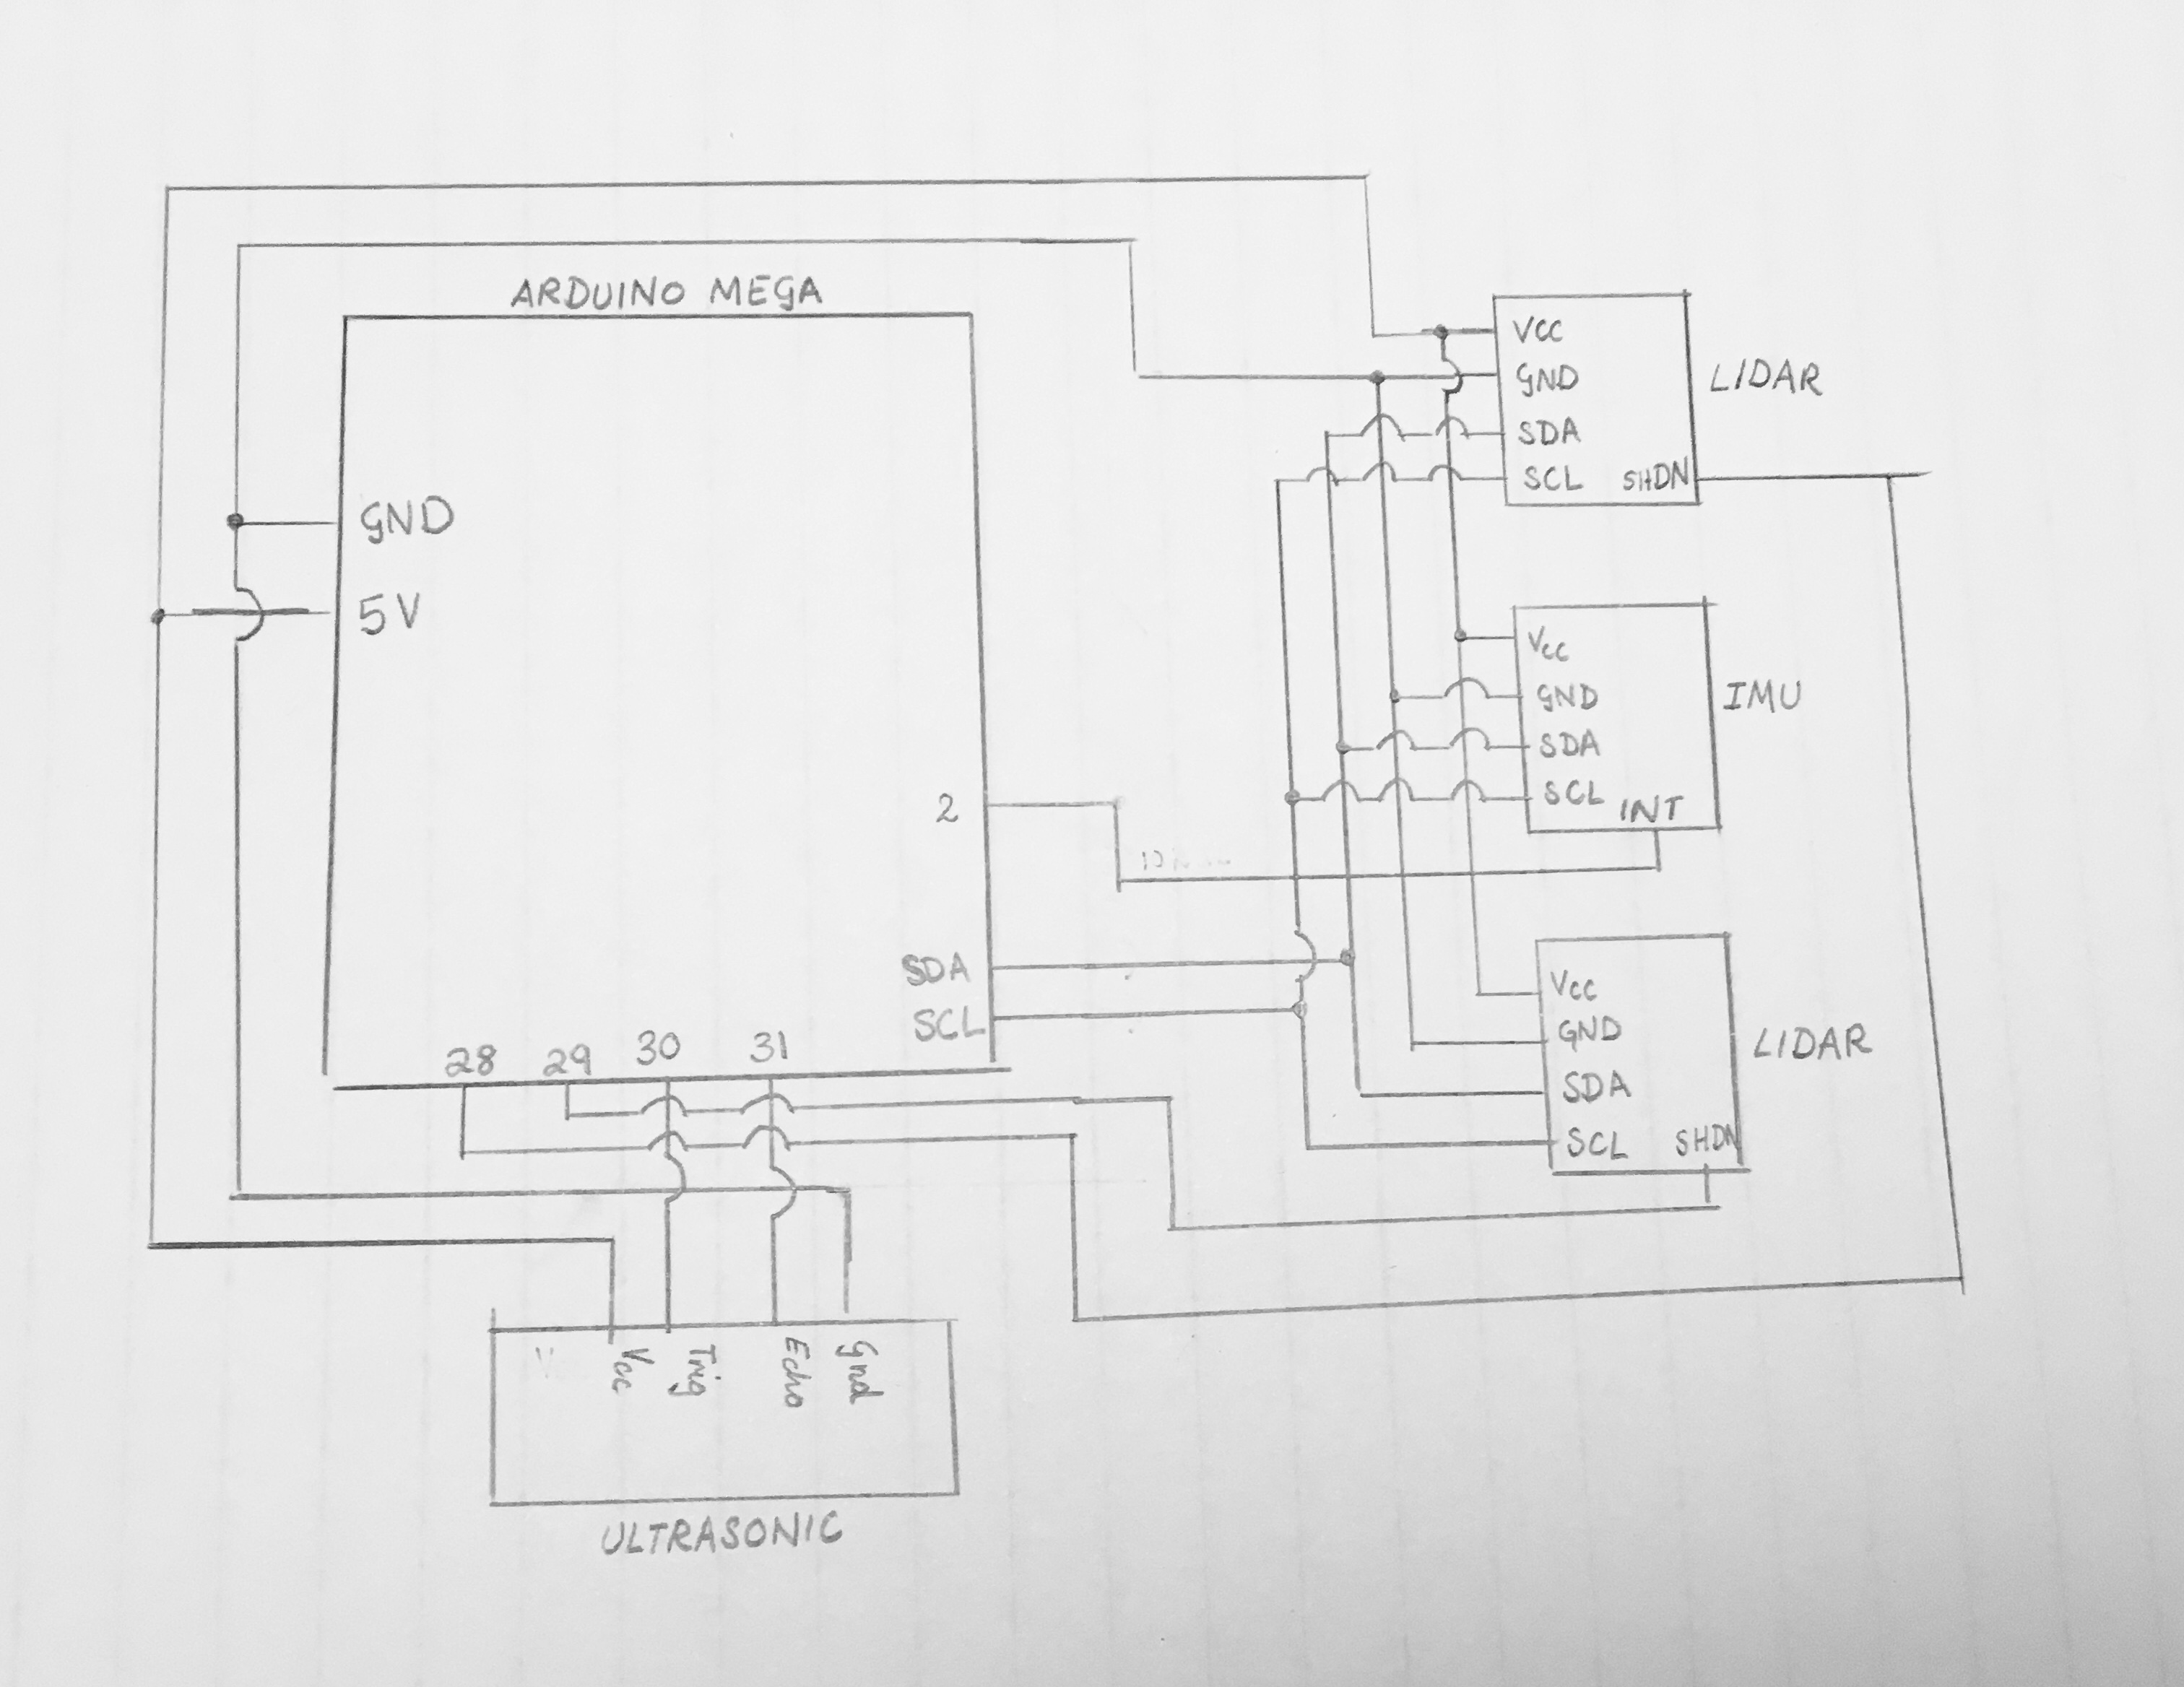 ARDUINO MEGA
GND
5V
2
SDA
SCL
28 29 30 31
VCC
GND
SDA
SCL SHDN
LIDAR
Vcc
GND
SDA
SCL INT
IMU
Vcc
GND
SDA
SCL SHDN
LIDAR
Vcc Trig Echo Gnd
ULTRASONIC